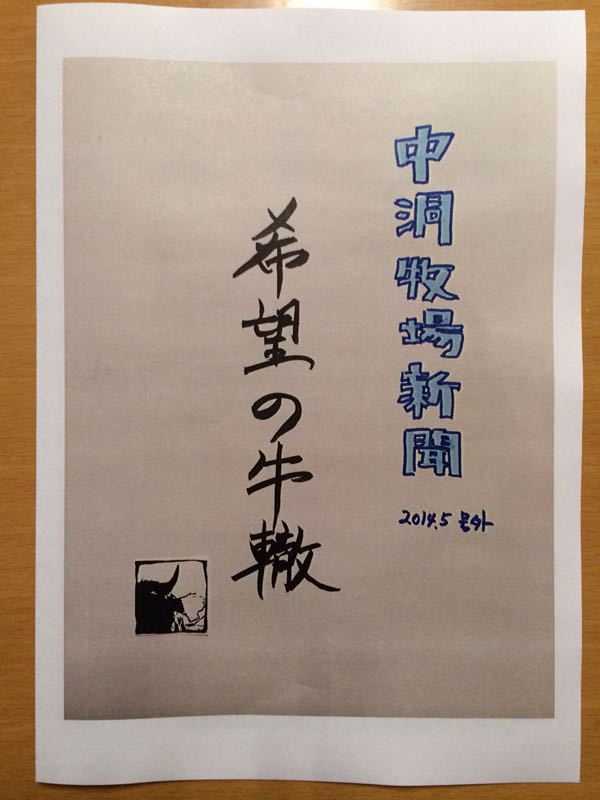 中洞牧場新聞
2014.5 号外
希望の牛轍